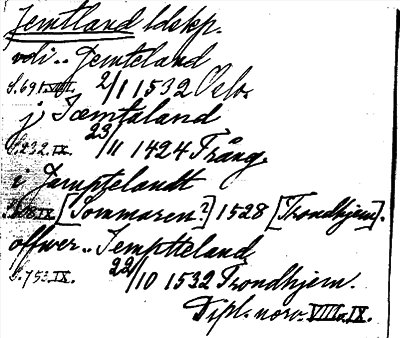 Jemtland ldskp.
vdi.. Jemteland
S. 691. VIII. 2/1 1532 Oslo.
j Jæmtaland
S. 232. IX. 23/11 1424 Frång.
i Jemptelandt
IX [Sommaren?] 1528 [Trondhjem].
offwer.. Jemptteland
S. 753. IX. 22/10 1532 Trondhjem.
Dipl. norv. VIII o. IX.